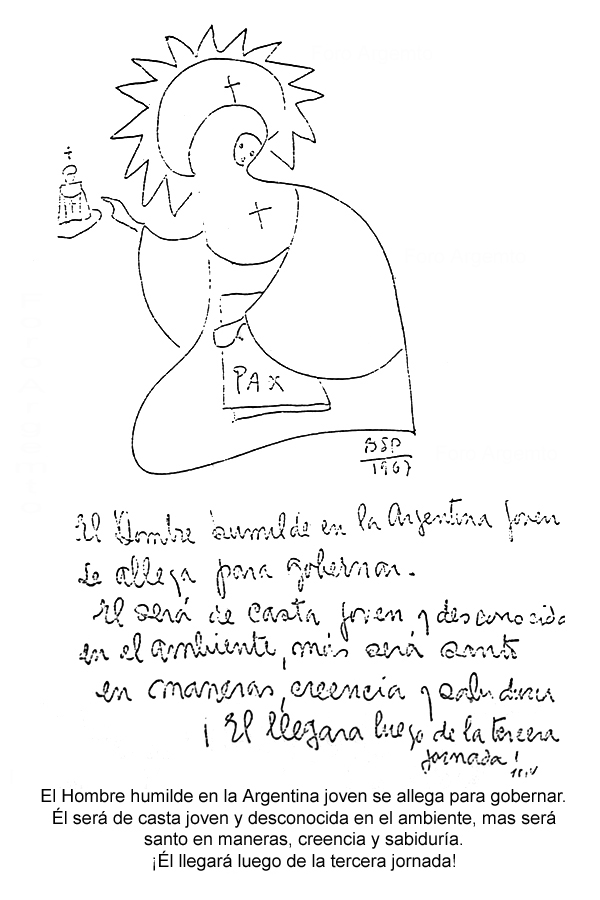 PAX
BSP
1967
El Hombre humilde en la Argentina joven
se allega para gobernar.
El será de casta joven y desconocida
en el ambiente, más será santo
en maneras, creencia y sabiduria
¡El llegara luego de la tercera
jornada!
El Hombre humilde en la Argentina joven se allega para gobernar.
Él será de casta joven y desconocida en el ambiente, mas será
santo en maneras, creencia y sabiduría.
¡Él llegará luego de la tercera jornada!